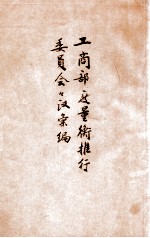 工商部度量衡推行
委員會會议彙編